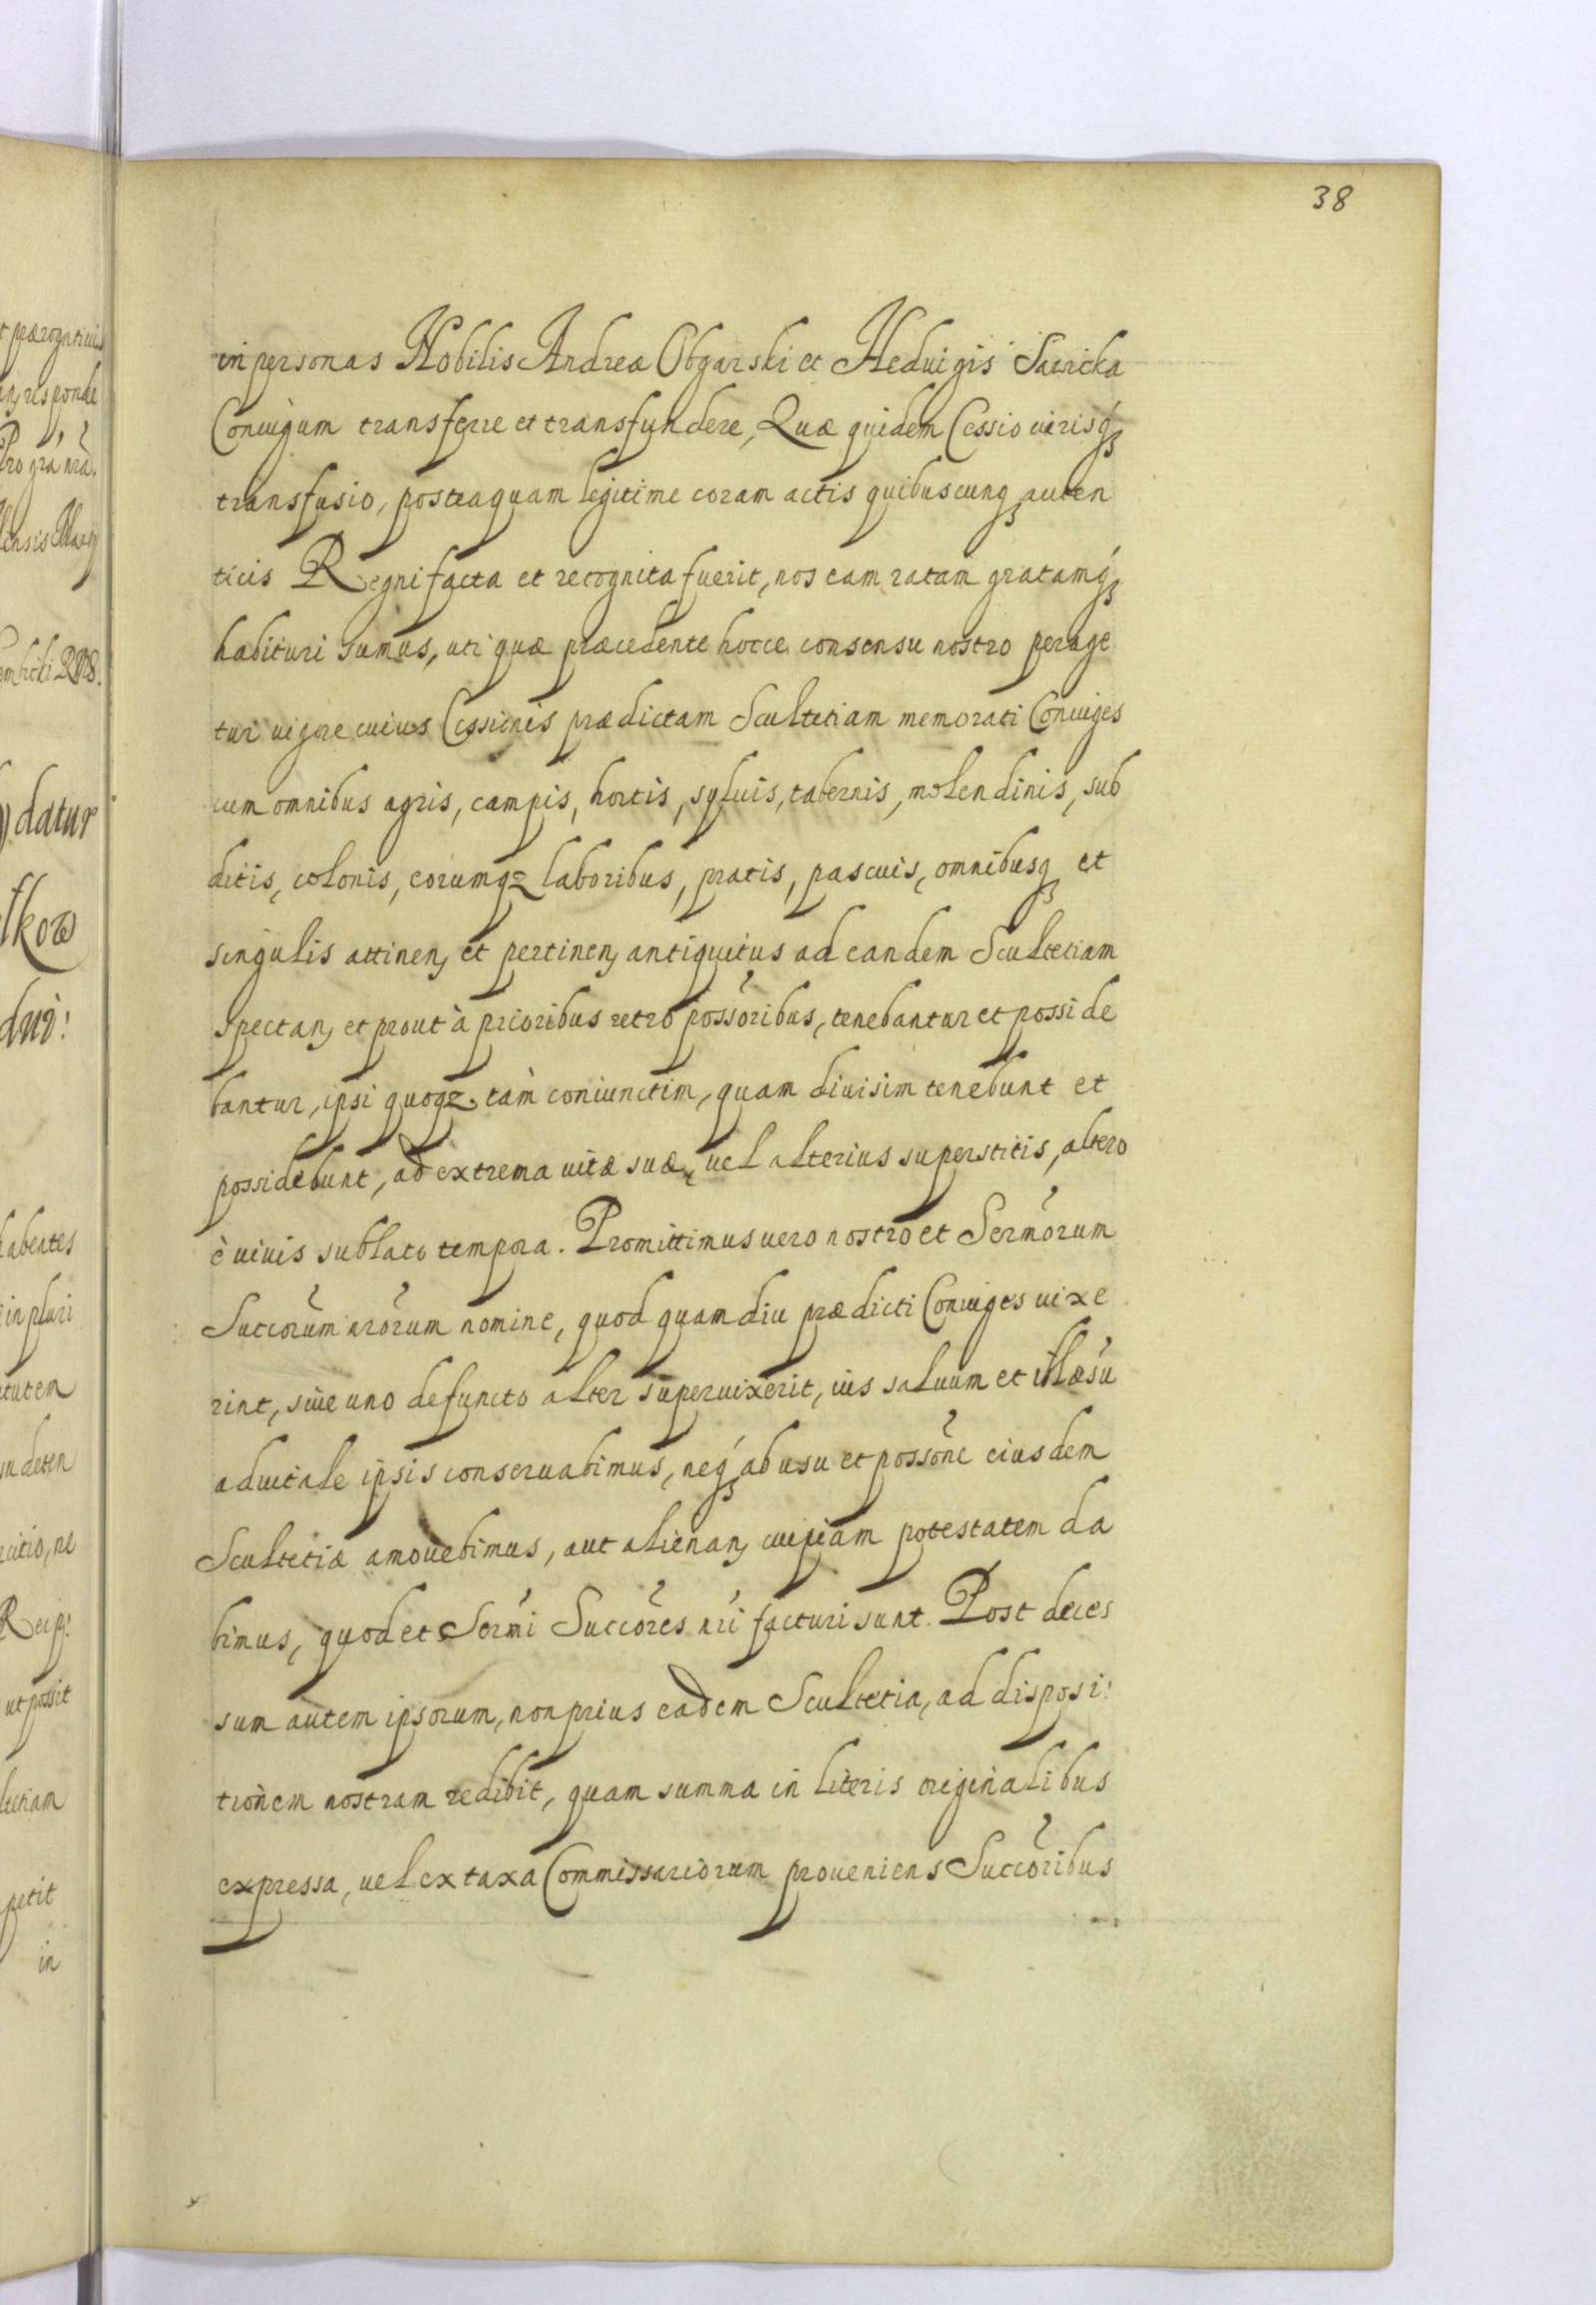 38
in personas Nobilis Andreæ Obgarski et Heduigis
Coniugum transferre et transfundere, Quæ quidem Cessio iurisq₃
transfusio, posteaquam legitime coram actis quibuscunq₃ auten
ticis Regni facta et recognita fuerit, nos eam ratam gratamq₃
habituri sumus, uti quæ præcedente hocce consensu nostro perage
tur uigore cuius Cessionis prædictam Scultetiam memorati Coniuges
cum omnibus agris, campis, hortis, syluis, tabernis, molendinis, sub
ditis, colonis, eorumqz laboribus, pratis, pascuis, omnibusq₃ et
singulis attinen, et pertinen, antiquitus ad eandem Scultetiam
spectan, et prout à prioribus retro possoribus, tenebantur et posside
bantur, ipsi quoqz tam coniunctim, quam diuisim tenebunt et
possidebunt, ad extrema uitæ suæ, uel alterius superstitis, altero
è uiuis sublato tempora. Promittimus uero nostro et Sermorum
Succorum nrorum nomine, quod quamdiu prædicti Coniuges uixe
rint, siue uno defuncto alter superuixerit, ius saluum et illæsū
aduitale ipsis conseruabimus, neq₃ ab usu et possone eiusdem
Scultetiæ amouebimus, aut alienan, cuipiam potestatem da
bimus, quod et Sermi Succores nri facturi sunt. Post deces
sum autem ipsorum, non prius eadem Scultetia, ad disposi:
tionem nostram redibit, quam summa in literis originalibus
expressa, uel ex taxa Commissariorum proueniens Succoribus